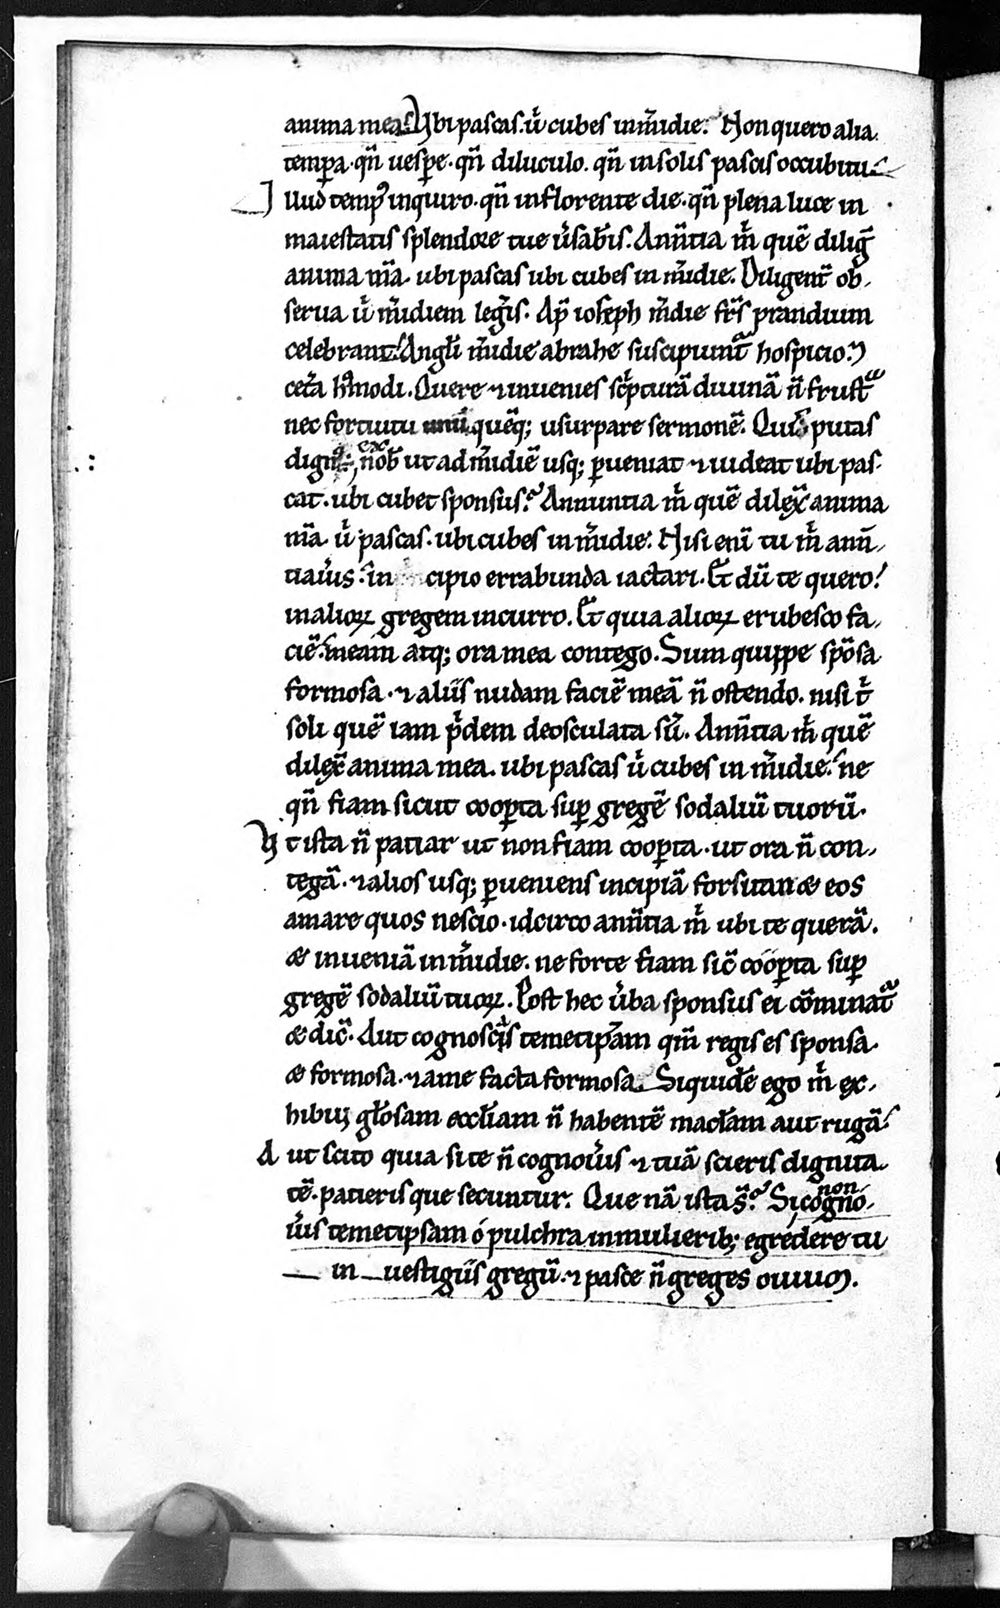 anima mea. Vbi pascas. u͛ cubes in m͛idie. Non quero alia
temꝑa. qn̄ uesꝑe. qn̄ diluculo. qn̄ in solis pascis occubitu.
Illud temp᷒ inquiro. qn̄ in florente die. qn̄ plena luce in
maiestatis splendore tue u͛sab͛is. Ann̄tia m͛ quē diliḡ
anima m̄a. ubi pascas ubi cubes in m͛idie. Diligent͛ ob-
serua u͛ m͛idiem leg͛is. Ap̄ ioseph m͛idie fr̄s prandium
celebrant. Angl̄i m͛idie abrahe suscipiunt᷑ hospicio. ⁊
cet͛a h᷒modi. Quere ⁊ inuenies sc͛pturā diuinā n̄ frustᷓ
nec fortuitu unū quēq; usurpare sermonē. Quis putas
dign᷒ ÷ ex nob̄ ut ad m͛idiē usq; ꝑueniat ⁊ uideat ubi pas-
cat. ubi cubet sponsus. Annuntia m͛ quē dilex̄ anima
m̄a u͛ pascas. ubi cubes in m͛idie. Nisi enī tu m͛ ann̄-
tiau͛is. in cipio errabunda iactari. Et dū te quero.
in alioꝝ gregem incurro. Et quia alioꝝ erubesco fa-
ciē meam atq; ora mea contego. Sum quippe spōsa
formosa. ⁊ aliis nudam faciē meā n̄ ostendo. nisi t͛
soli quē iam p͛dem deosculata sū. Ann̄tia m͛ quē
dilex̄ anima mea. ubi pascas u͛ cubes in m͛idie. ne
qn̄ fiam sicut cooꝑta suꝑ gregē sodaliū tuorū.
Vt ista n̄ patiar ut non fiam cooꝑta. ut ora n̄ con-
tegā. ⁊ alios usq; ꝑueniens incipiā forsitan & eos
amare quos nescio. idcirco ann̄tia m͛ ubi te querā.
& inueniā in m͛idie. ne forte fiam sic̄ cooꝑta suꝑ
gregē sodaliū tuoꝝ. Post hec u͛ba sponsus ei cōminat᷑
& dic̄. Aut cognosc͛is temetip̄am qm̄ regis es sponsa.
& formosa. ⁊ a me facta formosa. Siquidē ego m͛ ex-
hibui gl̄osam eccl̄iam n̄ habentē macl̄am aut rugā.
Aut scito quia si te n̄ cognou͛is ⁊ tuā scieris dignita-
tē. patieris que secuntur. Que nā ista s̄. Si non cogno-
u͛is temetipsam o pulchra in mulierib; egredere tu
in uestigiis gregū. ⁊ pasce n̄ greges ouium.